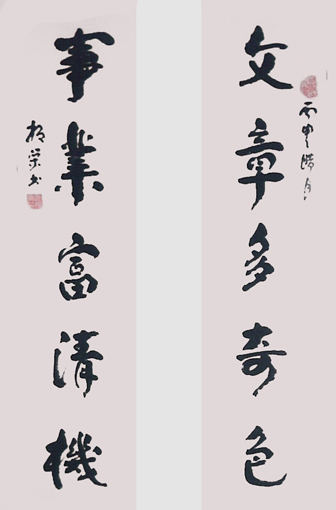 丙申腊月
文章多奇色
事業富清機